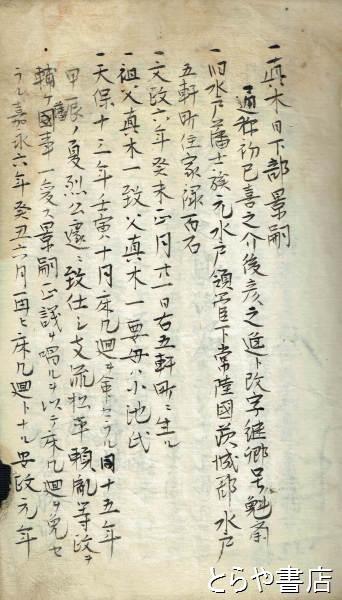 一真木日下部景嗣
通称初已喜之介後彦之進ト改字継郷号魁斎
一旧水戸藩士族元水戸領臣下常陸國茨城郡水戸
五軒町住家禄百石
一文政六年癸未正月廿一日右五軒町ニ生ル
一祖父真木一致父真木一要母ハ小池氏
一天保十三年壬寅十月床几廻ヲ命セラル同十五年
甲辰ノ夏烈公遽ニ致仕シ支流松平頼胤等政ヲ
輔ケ國事一変ス景嗣正議ヲ唱ルヲ以テ床几廻ヲ免セ
ラル嘉永六年癸丑六月再ヒ床几廻トナル安政元年
とらや書店